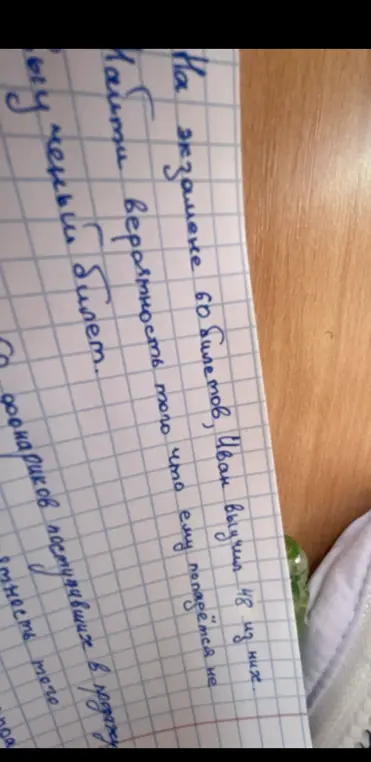 На экзамене 60 билетов, Иван выучил 48 из них.
Найти вероятность того что ему попадётся не
выученый билет.
фонариков поступавших в
того